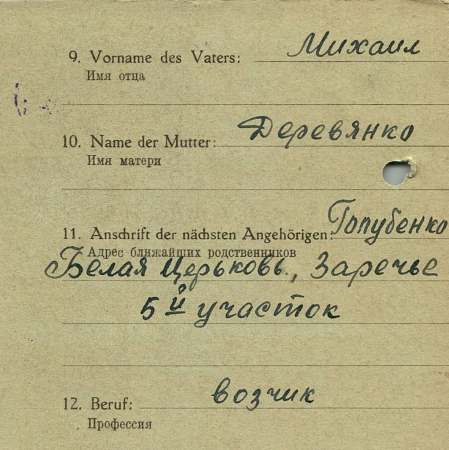 9. Vorname des Vaters: Михаил
Имя отца
10. Name der Mutter: Деревянко
Имя матери
11. Anschrift der nächsten Angehörigen: Голубенко
Адрес ближайших родственников
Белая Церьковь, Заречье
5й участок
12. Beruf: возчик
Профессия